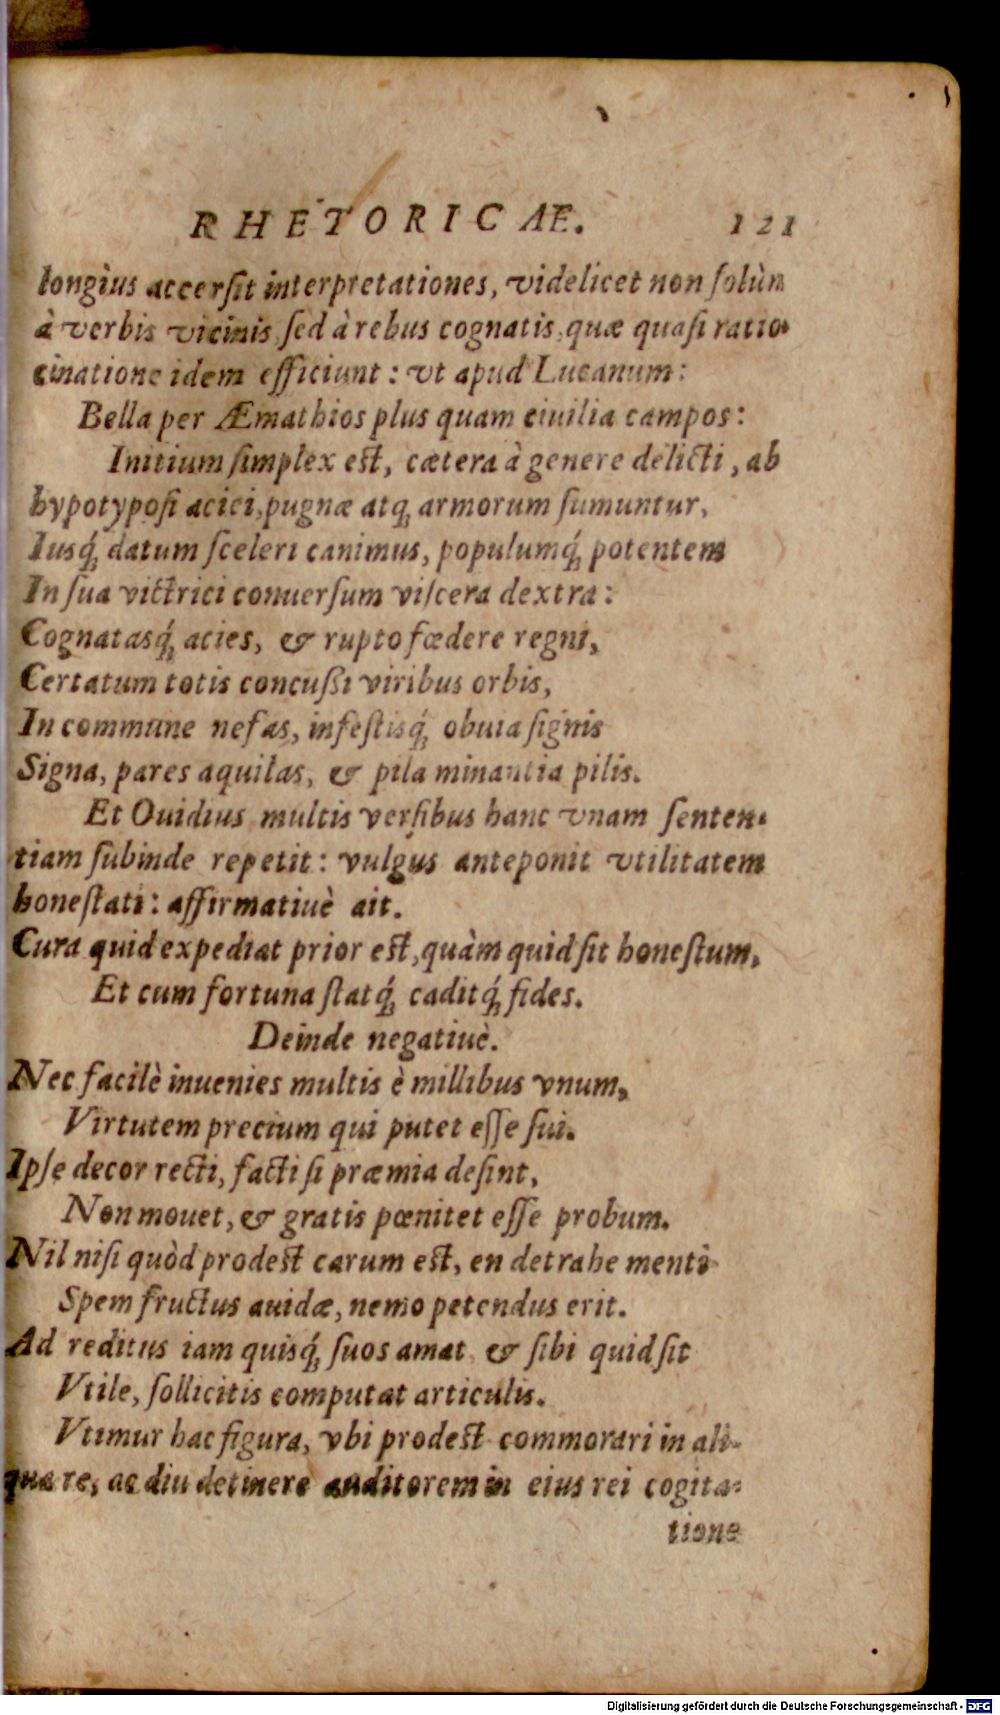 RHETORICAE. 121
longiùs accersit interpretationes, videlicet non solùm
à verbis vicinis sed à rebus cognatis, quæ quasi ratio-
cinatione idem efficiunt: vt apud Lucanum:
Bella per Æmathios plus quam ciuilia campos:
Initium simplex est, cætera à genere delicti, ab
hypotyposi aciei, pugnæ atq; armorum sumuntur,
Iusq́; datum sceleri canimus, populumq́; potentem
In sua victrici conuersum viscera dextra:
Cognatasq́; acies, & rupto fœdere regni,
Certatum totis concussi viribus orbis,
In commune nefas, infestisq́; obuia signis
Signa, pares aquilas, & pila minantia pilis.
Et Ouidius multis versibus hanc vnam senten-
tiam subinde repetit: vulgus anteponit vtilitatem
honestati: affirmatiuè ait.
Cura quid expediat prior est, quàm quid sit honestum,
Et cum fortuna statq́; caditq́; fides.
Deinde negatiuè.
Nec facilè inuenies multis è millibus vnum,
Virtutem precium qui putet esse sui.
Ipse decor recti, facti si præmia desint,
Non mouet, & gratis pœnitet esse probum.
Nil nisi quòd prodest carum est, en detrahe menti
Spem fructus auidæ, nemo petendus erit.
Ad reditus iam quisq́; suos amat & sibi quid sit
Vtile, sollicitis computat articulis.
Vtimur hac figura, vbi prodest commorari in ali-
qua re, ac diu detinere auditorem in eius rei cogita-
tione
Digitalisierung gefördert durch die Deutsche Forschungsgemeinschaft - DFG